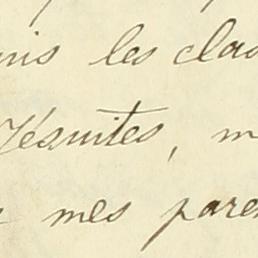 les clas
Jésuites, m
mes paren